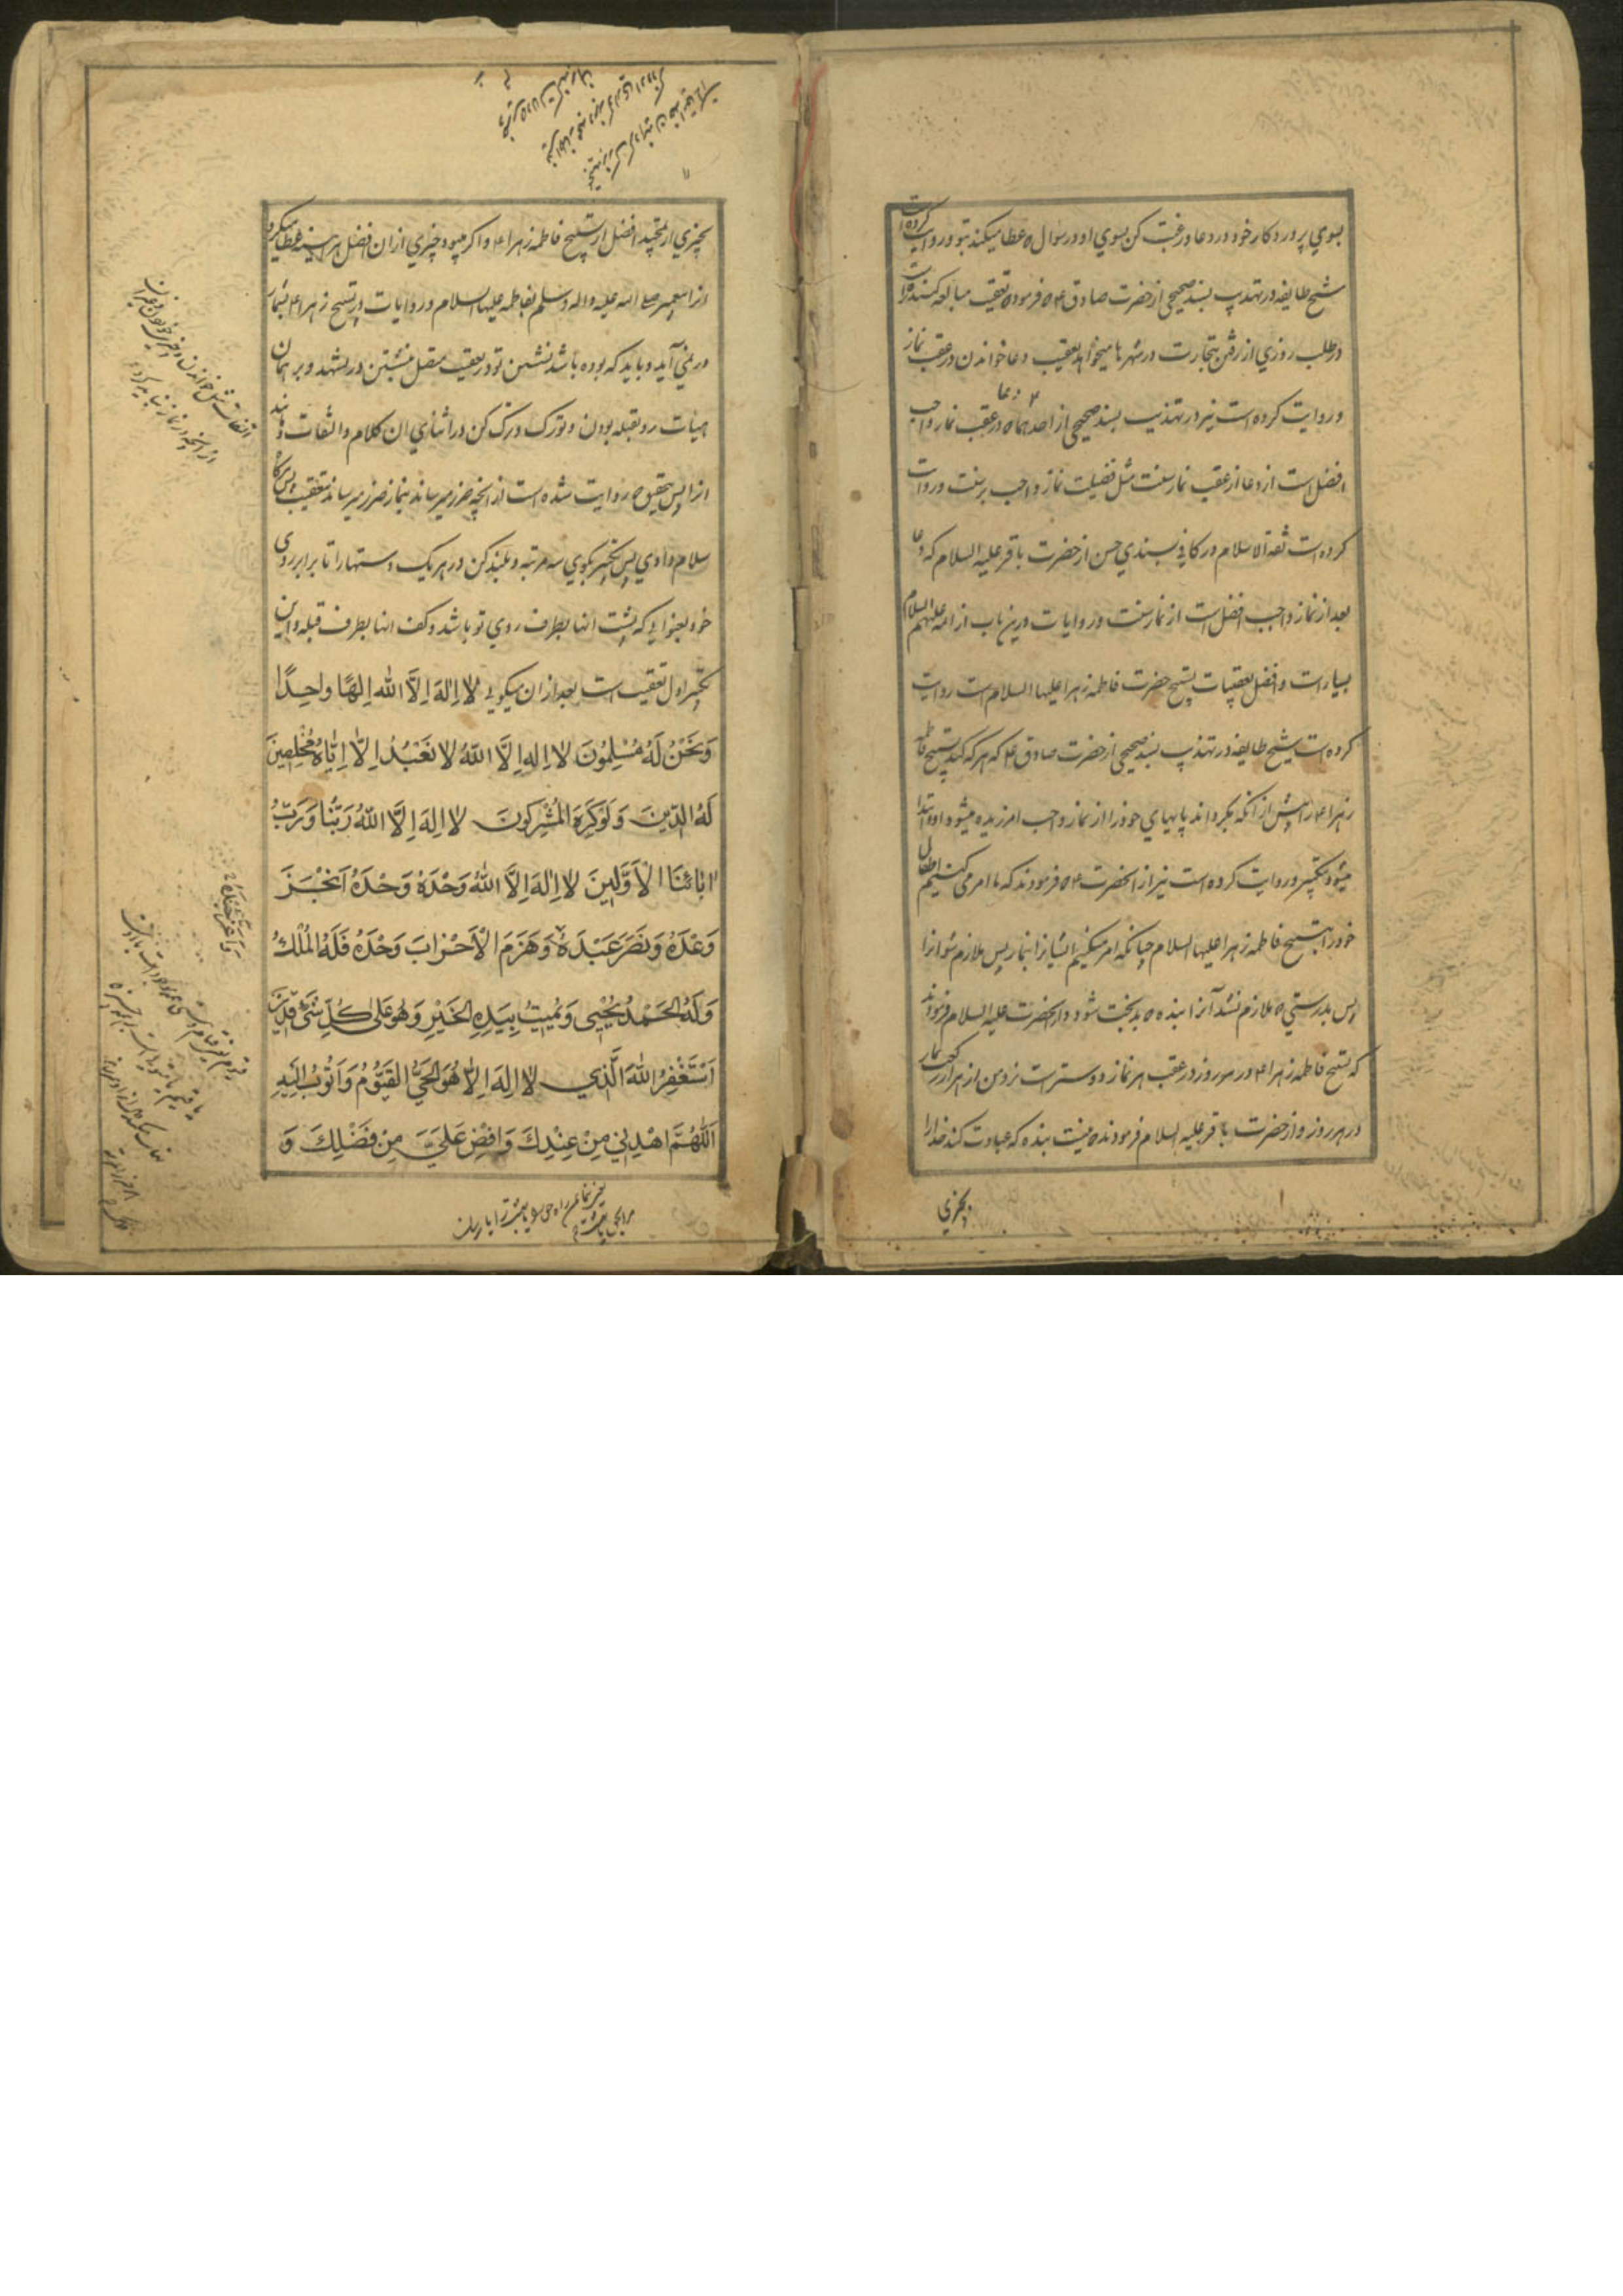 بسوي پروردكار خود در دعا و رغبت كن بسوي او در سؤال ه عطا ميكند بتو و روايت كرده است
شيخ طايفه در تهذيب بسند صحيح از حضرت صادق ع ه فرموده تعقيب مبالغه كننده تر است
در طلب روزي از رفتن بتجارت در شهرها ميخواهد بتعقيب دعا خواندن در عقب نماز
و روايت كرده است نيز در تهذيب بسند صحيح از احدهما ه دعا در عقب نماز واجب
افضل است از دعا از عقب نماز سنت مثل فضيلت نماز واجب بر سنت و روايت
كرده است ثقة الاسلام در كافي بسندي حسن از حضرت باقر عليه السلام كه دعا
بعد از نماز واجب افضل است از نماز سنت و روايات درين باب از ائمه عليهم السلام
بسيار است و افضل تعقيبات تسبيح حضرت فاطمه زهرا عليها السلام است روايت
كرده است شيخ طايفه در تهذيب بسند صحيح از حضرت صادق ع كه هر كه كند تسبيح فاطمه
زهرا ع را پيش از آنكه بكرداند پايهاي خود را از نماز واجب امرزيده ميشود و ابتدا
ميشود بتكبير و روايت كرده است نيز از انحضرت ع ه فرمودند كه ما امر مي كنيم اطفال
خود را بتسبيح فاطمه زهرا عليها السلام چنانكه امر ميكنيم ايشانرا بنماز پس ملازم شو انرا
پس بدرستي ه ملازم نشد آنرا بنده ه بدبخت شود و از انحضرت عليه السلام فرمودند
كه تسبيح فاطمه زهرا ع در هر روز در عقب هر نماز دوستر است نزد من از هزار ركعت نماز
در هر روز و از حضرت باقر عليه السلام فرمودند ه نيست بنده كه عبادت كند خدا را
بچيزي
بچيزي از تمجيد افضل از تسبيح فاطمه زهرا ع و اكر ميبود چيزي از ان افضل هر اينه عطا ميكرد
انرا پيغمبر صلى الله عليه واله وسلم بفاطمه عليها السلام و روايات در تسبيح زهرا ع بشمار
در نمي آيد و بايد كه بوده باشد نشستن تو در تعقيب متصل بنشستن در تشهد و بر همان
هيأت رو بقبله بودن و تورك و ترك كن در اثناي ان كلام و التفات و مانند
انرا پس بتحقيق ه روايت شده است از انچه ضرر ميرساند بنماز ضرر ميرساند بتعقيب پس هركاه
سلام دادي پس تكبير بكوي سه مرتبه و بلند كن در هر يك دستها را تا برابر روي
خود بعنواني كه پشت انها بطرف روي تو باشد و كف انها بطرف قبله و اين
تكبير اول تعقيب است بعد از ان ميكوئي لا اِلهَ اِلاَّ الله اِلهًا واحِدًا
وَنَحْنُ لَهُ مُسْلِمُونَ لا اِلهَ اِلَّا اللهُ لا نَعْبُدُ اِلاّ اِيّاهُ مُخْلِصِينَ
لَهُ الدّينَ وَلَوْ كَرِهَ الْمُشْرِكُونَ لا اِلهَ اِلَّا اللهُ رَبُّنا وَرَبُّ
ابائنَا الْاَوَّلينَ لا اِلهَ اِلَّا اللهُ وَحْدَهُ وَحْدَهُ وَحْدَهُ اَنْجَزَ
وَعْدَهُ وَنَصَرَ عَبْدَهُ وَهَزَمَ الْاَحْزابَ وَحْدَهُ فَلَهُ الْمُلْكُ
وَلَهُ الْحَمْدُ يُحْيي وَيُميتُ بِيَدِهِ الْخَيْرِ وَهُوَ عَلى كُلِّ شَيْءٍ قَديرٌ
اَسْتَغْفِرُ اللهَ الَّذي لا اِلهَ اِلاّ هُوَ الْحَيُّ الْقَيُّومُ وَاَتُوبُ اِلَيْهِ
اَللّهُمَّ اهْدِني مِنْ عِنْدِكَ وَاَفِضْ عَلَيَّ مِنْ فَضْلِكَ وَ